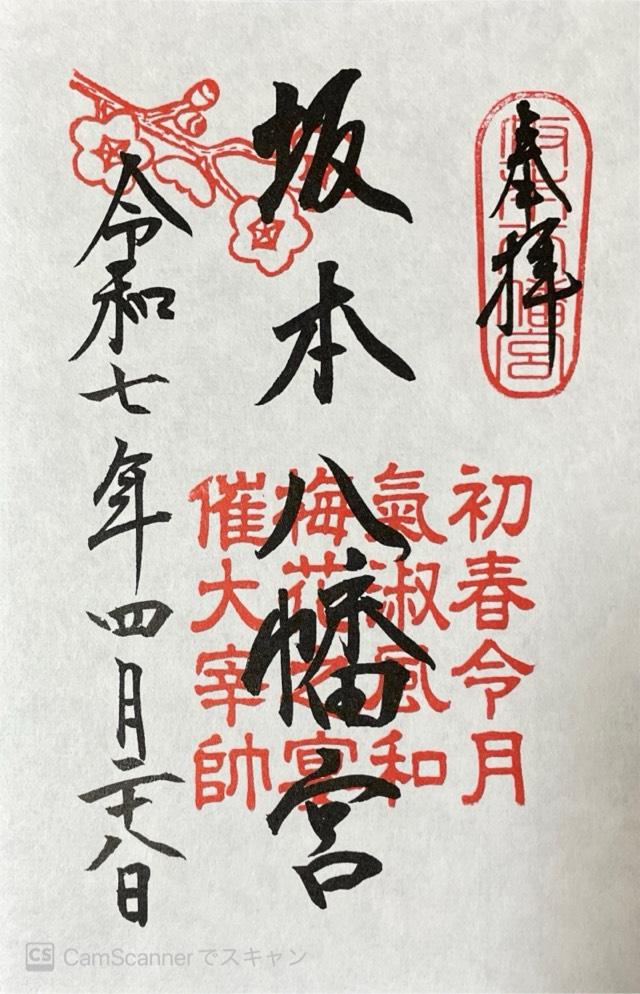 奉拝
坂本八幡宮
坂本八幡宮
初春令月
氣淑風和
梅花之宴
催大宰帥
令和七年四月二十八日
CS CamScannerでスキャン